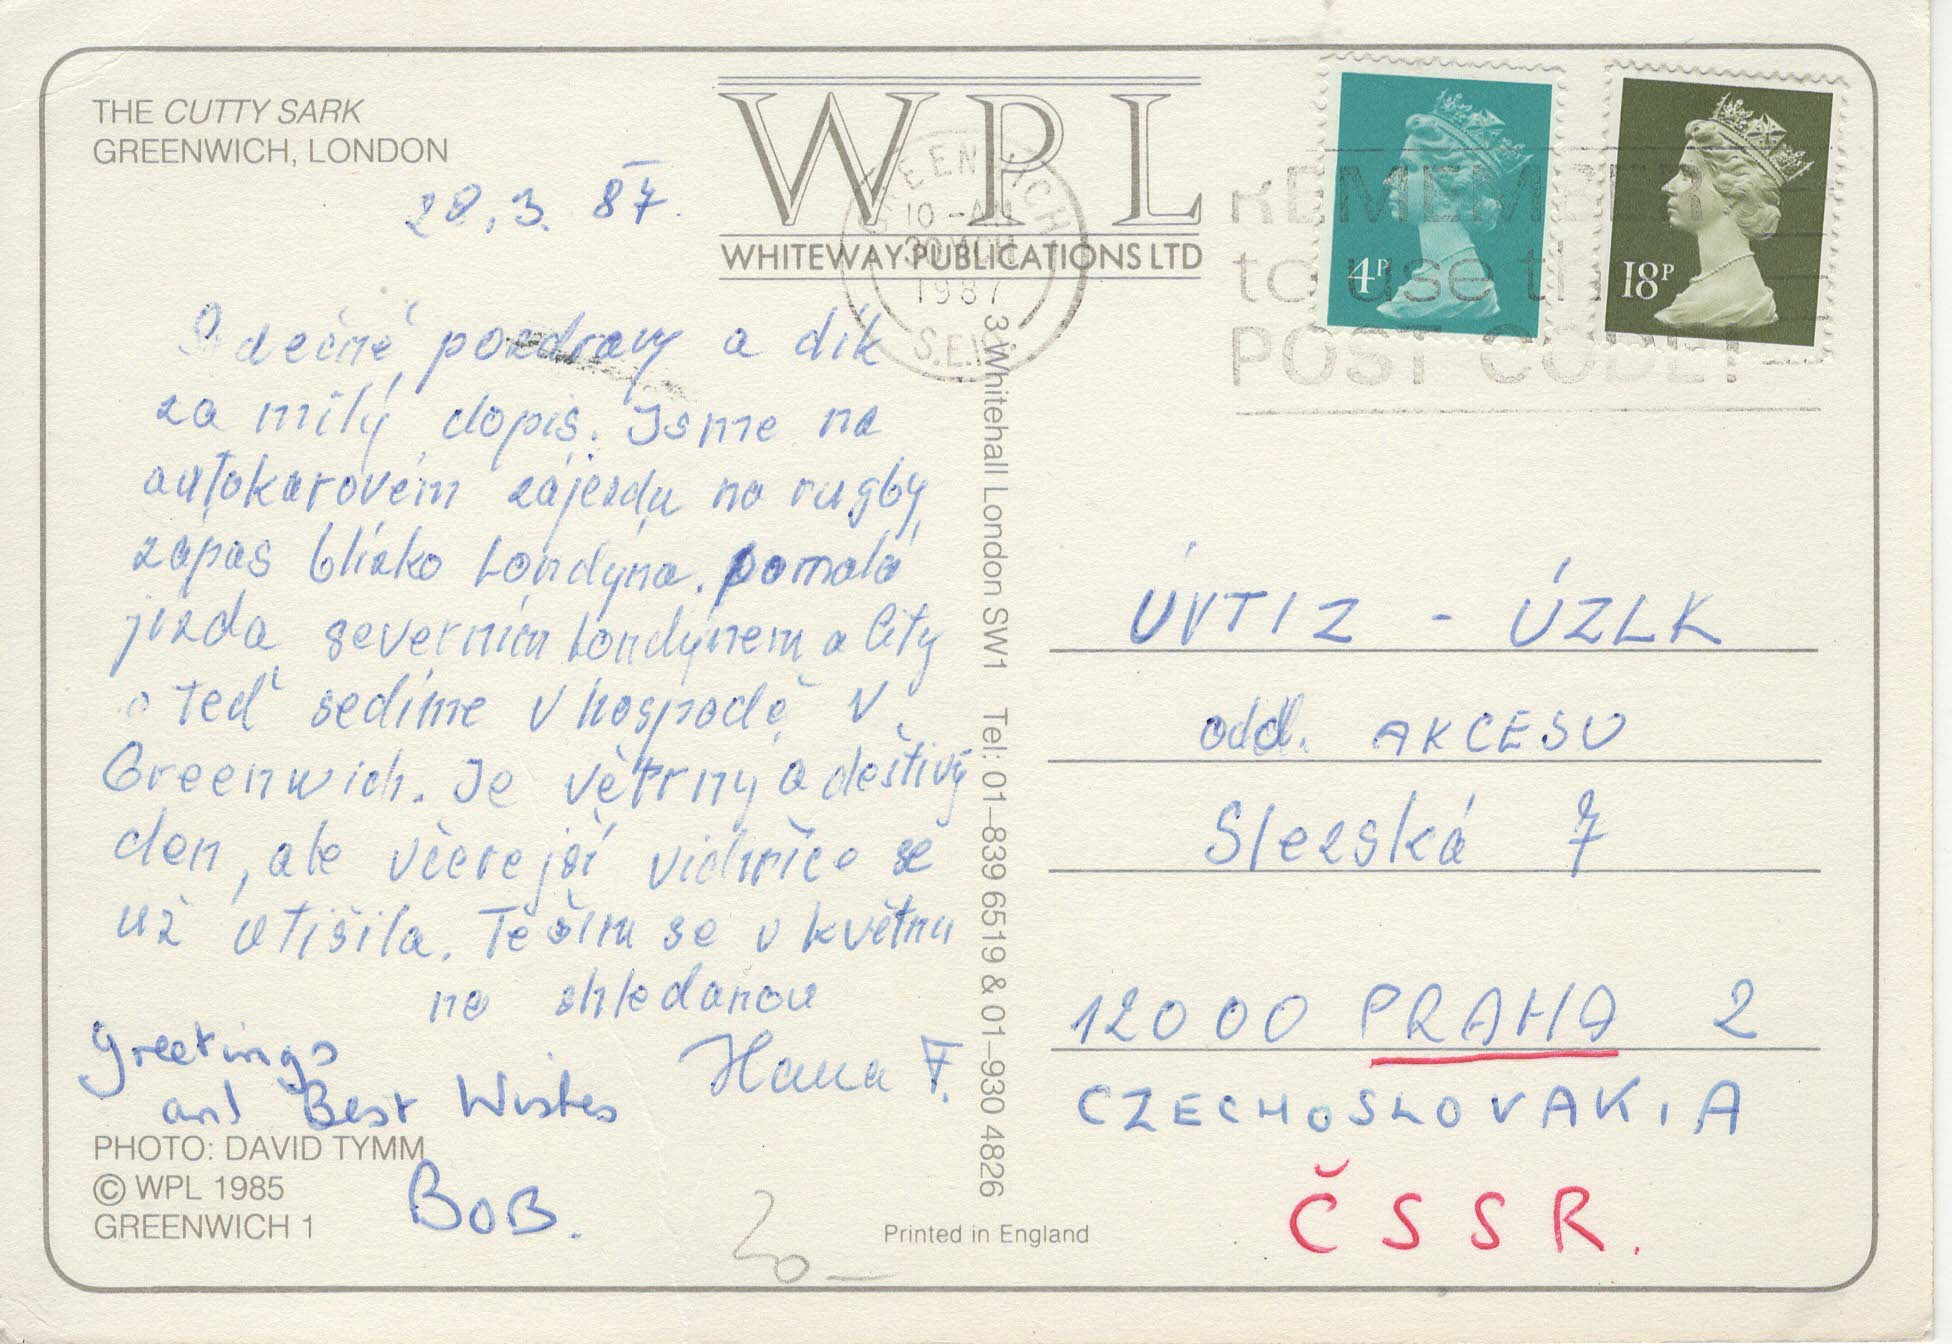 THE CUTTY SARK
GREENWICH, LONDON
28.3.87.
WPL
WHITEWAY PUBLICATIONS LTD
GREENWICH
10-AM
30 MCH
1987
S.E.
REMEMBER
to use the
POST CODE!
4P
18P
Srdečné pozdravy a dík
za milý dopis. Jsme na
autokarovém zájezdu na rugby
zápas blízko Londýna. pomalá
jízda severním Londýnem a City
a teď sedíme v hospodě v
Greenwich. Je větrný a deštivý
den, ale včerejší vichřice se
už utišila. Těším se v květnu
na shledanou
Hana F.
Greetings
and Best Wishes
BOB.
PHOTO: DAVID TYMM
© WPL 1985
GREENWICH 1
20_
Printed in England
3 Whitehall London SW1 Tel: 01–839 6519 & 01–930 4826
ÚVTIZ - ÚZLK
odd. AKCESU
Slezská 7
12000 PRAHA 2
CZECHOSLOVAKIA
ČSSR.